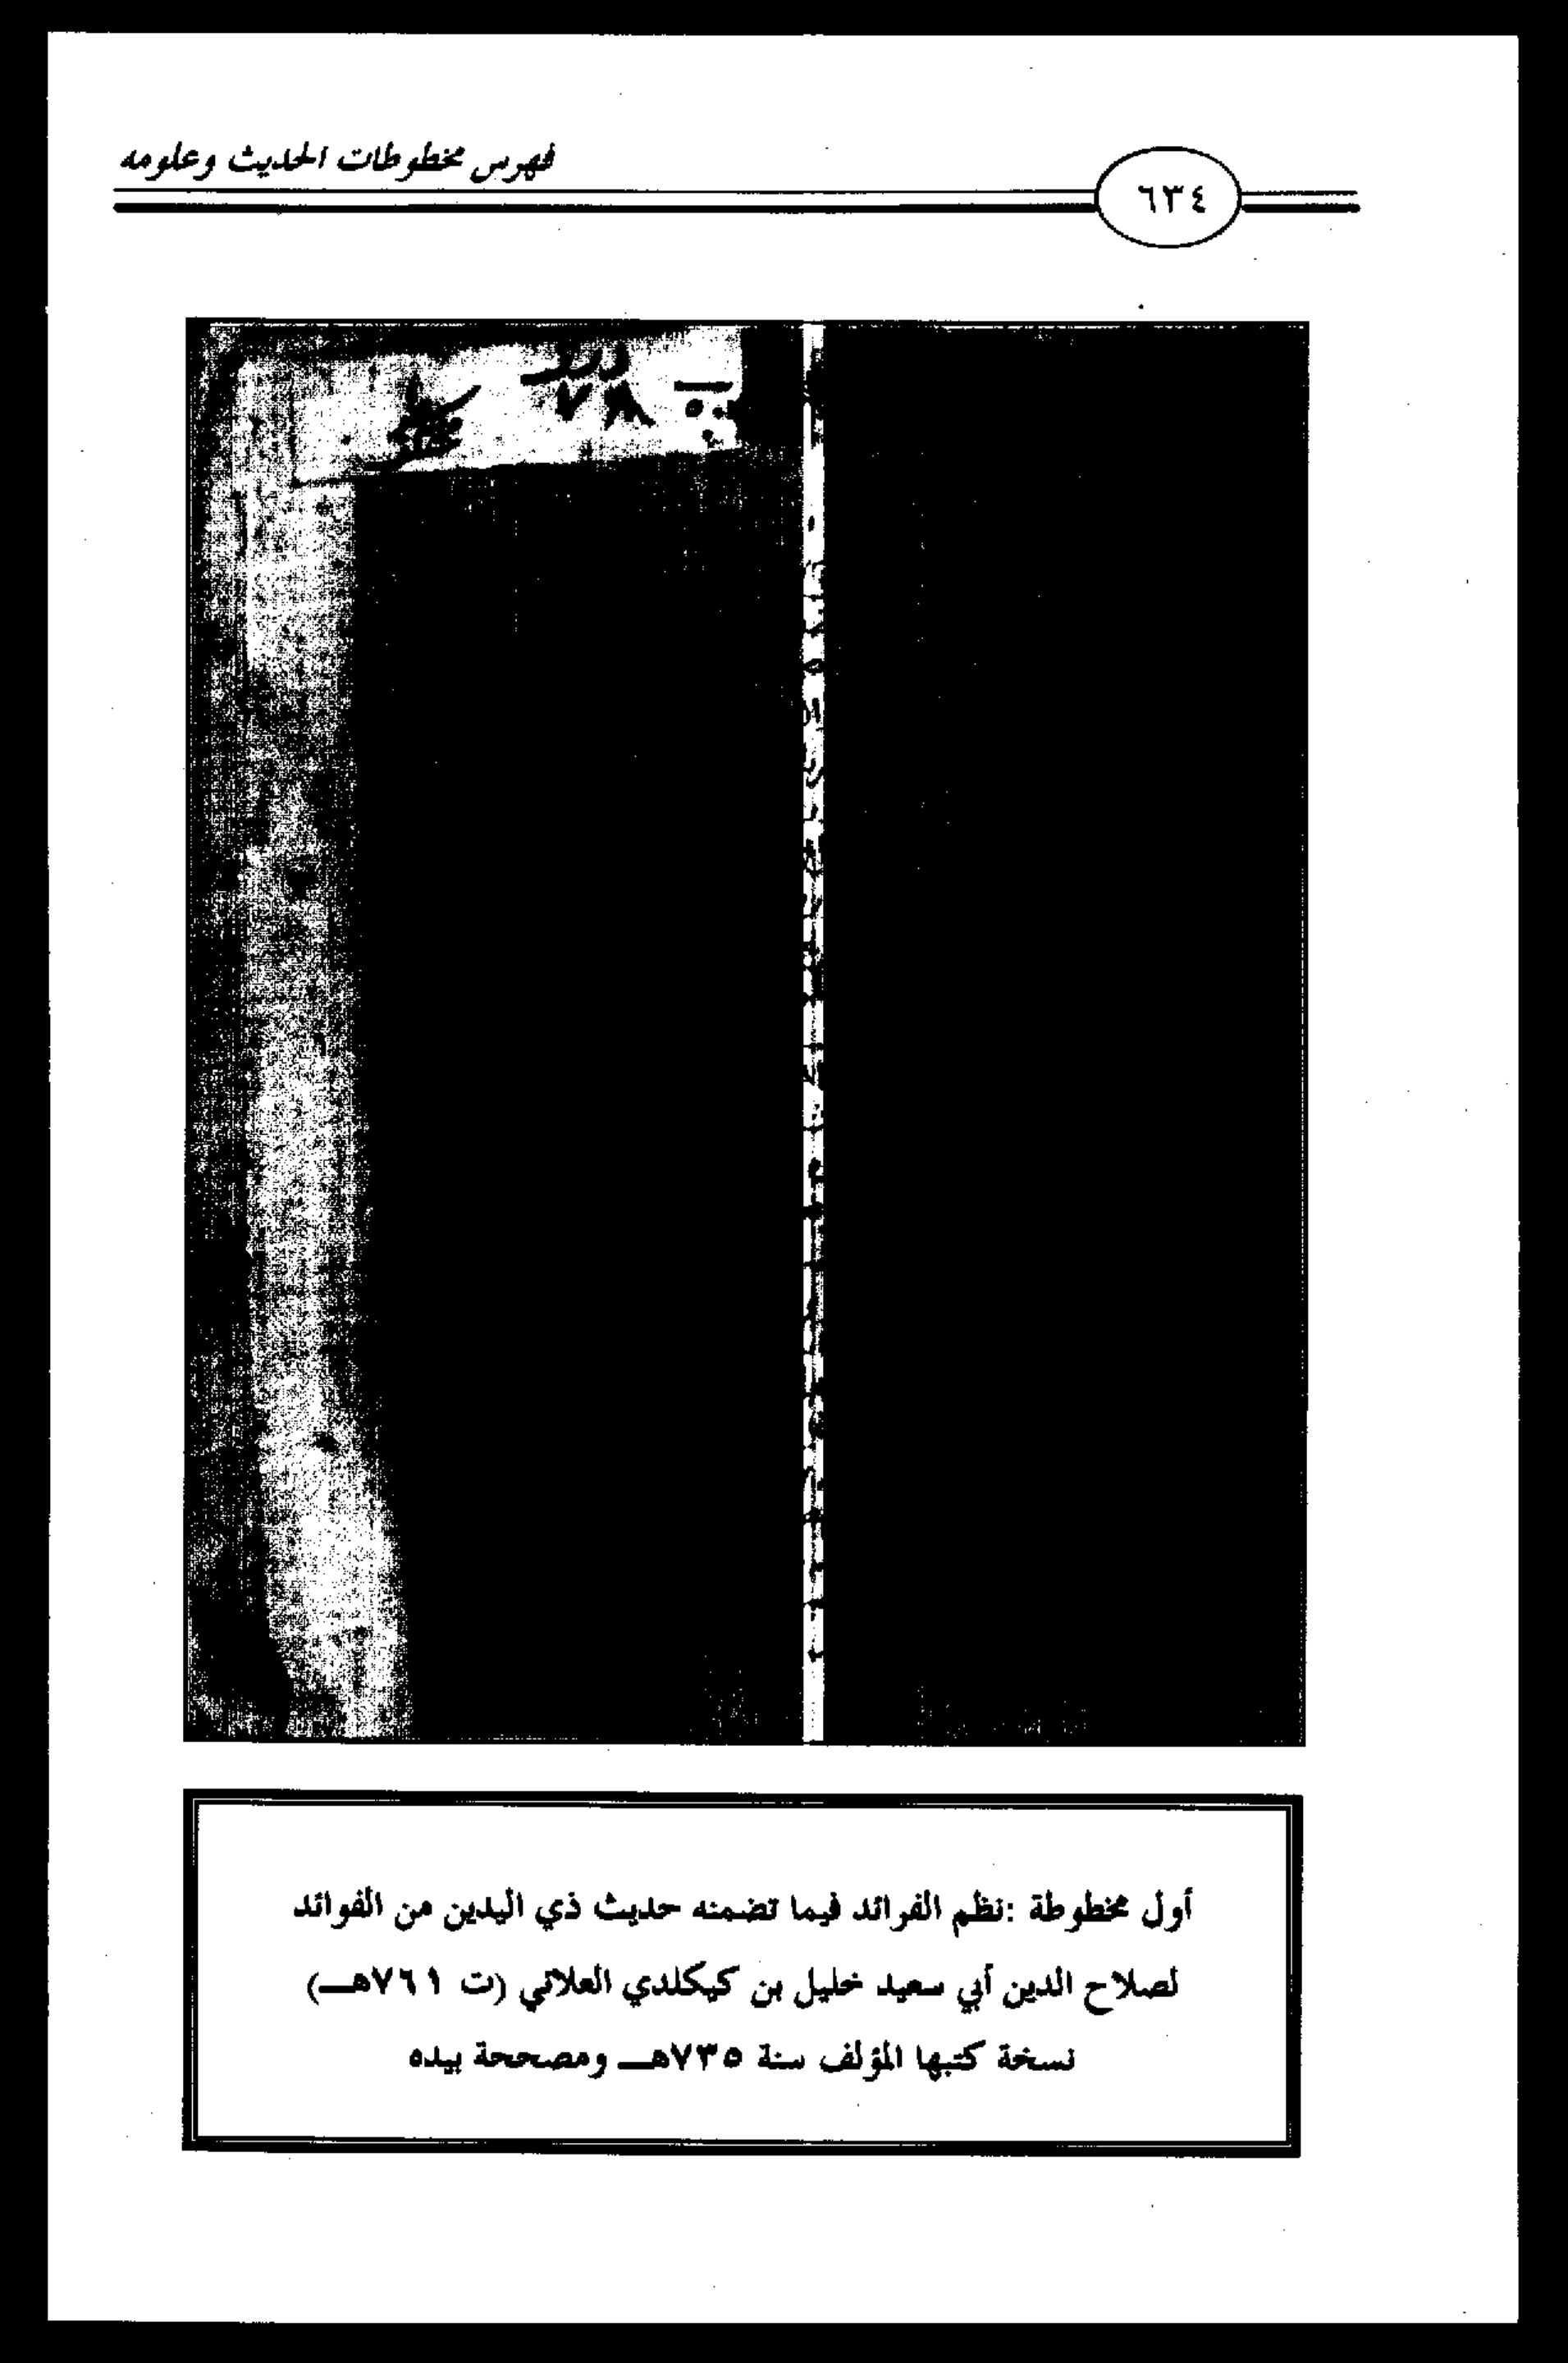 فهرس مخطوطات الحديث وعلومه
٦٣٤
٧٨
أول مخطوطة :نظم الفرائد فيما تضمنه حديث ذي اليدين من الفوائد
لصلاح الدين أبي سعيد خليل بن كيكلدي العلائي (ت ٧٦١هـ)
نسخة كتبها المؤلف سنة ٧٣٥هـ ومصححة بيده